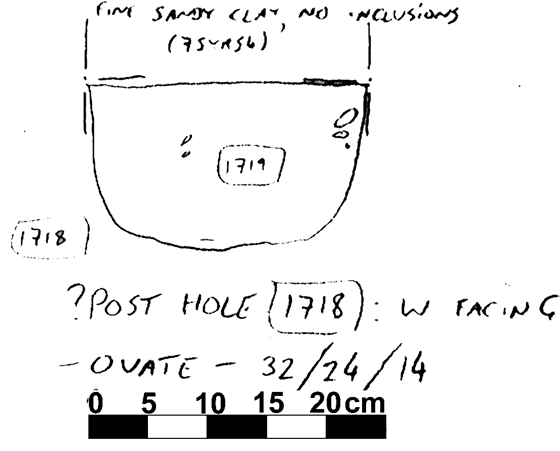 FINE SANDY CLAY, NO INCLUSIONS
(75YR56)
1719
1718
?POST HOLE (1718): W FACING
- OVATE - 32/24/14
0 5 10 15 20cm